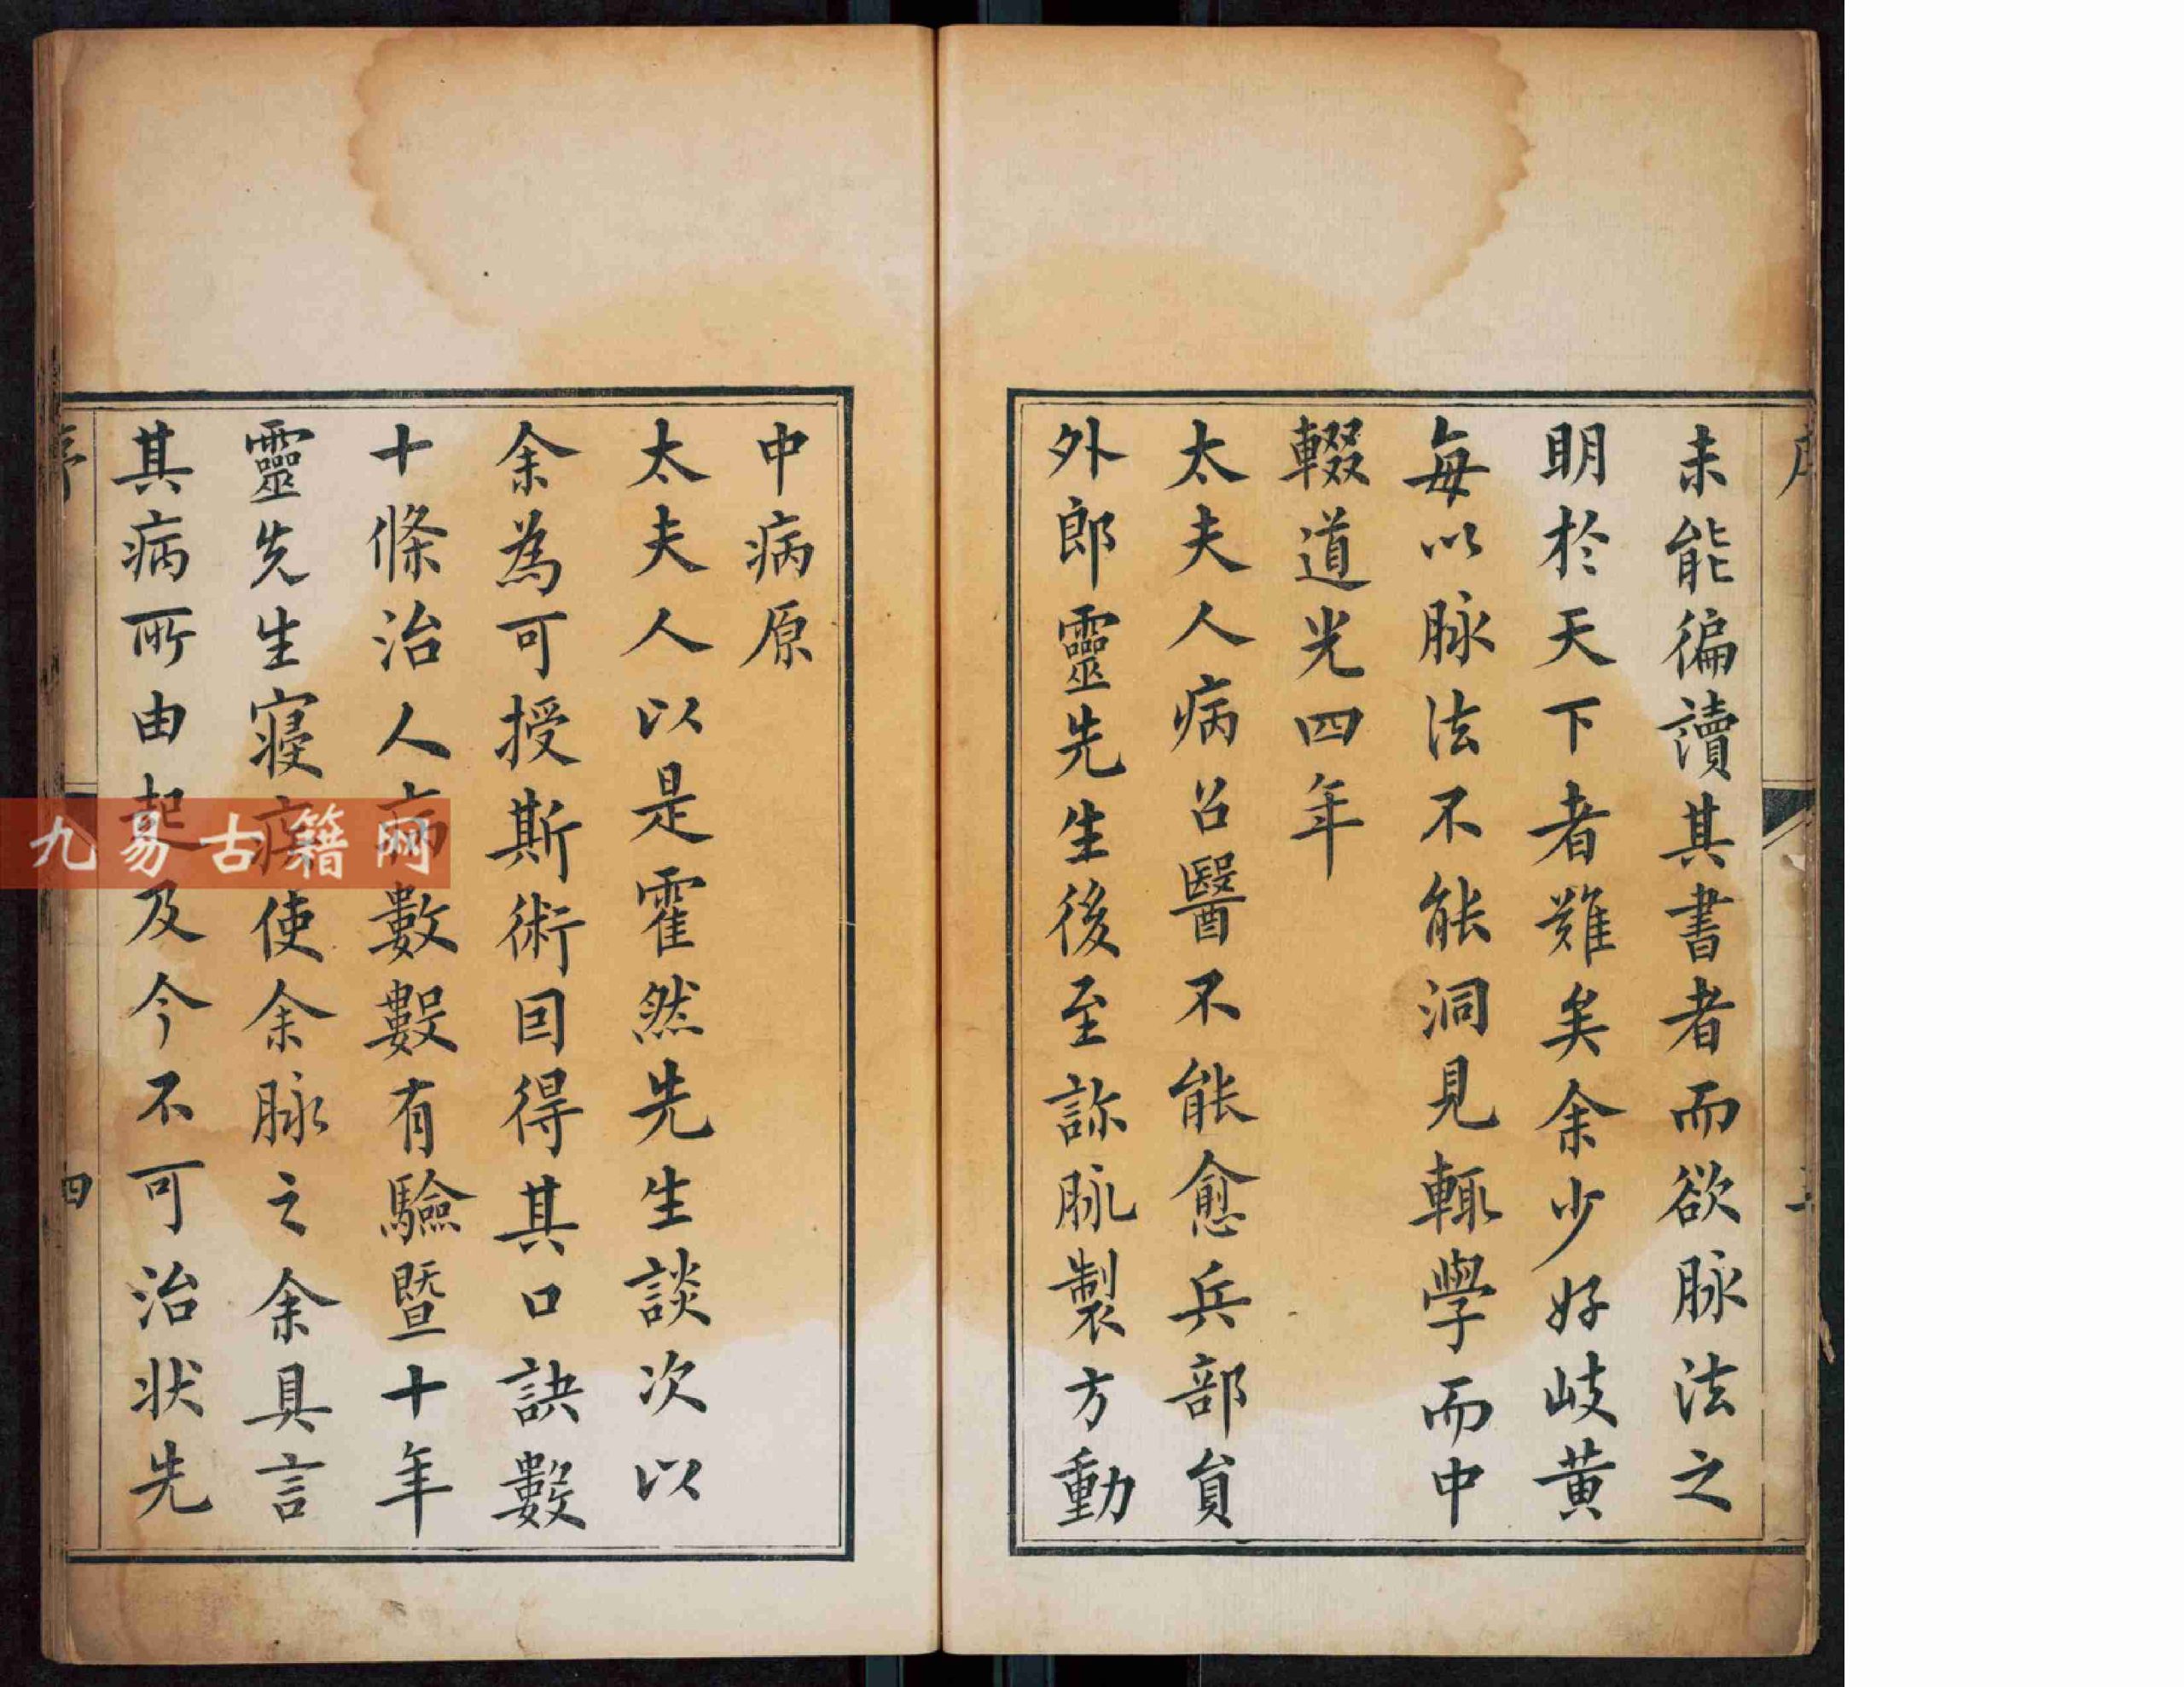 未能徧讀其書者而欲脉法之
明於天下者難矣余少好岐黄
每以脉法不能洞見輒學而中
輟道光四年
太夫人病召醫不能愈兵部員
外郎靈先生後至診脉製方動
中病原
太夫人以是霍然先生談次以
余為可授斯術因得其口訣數
十條治人病數數有驗暨十年
靈先生寢疾使余脉之余具言
其病所由起及今不可治状先
四
九易古籍网